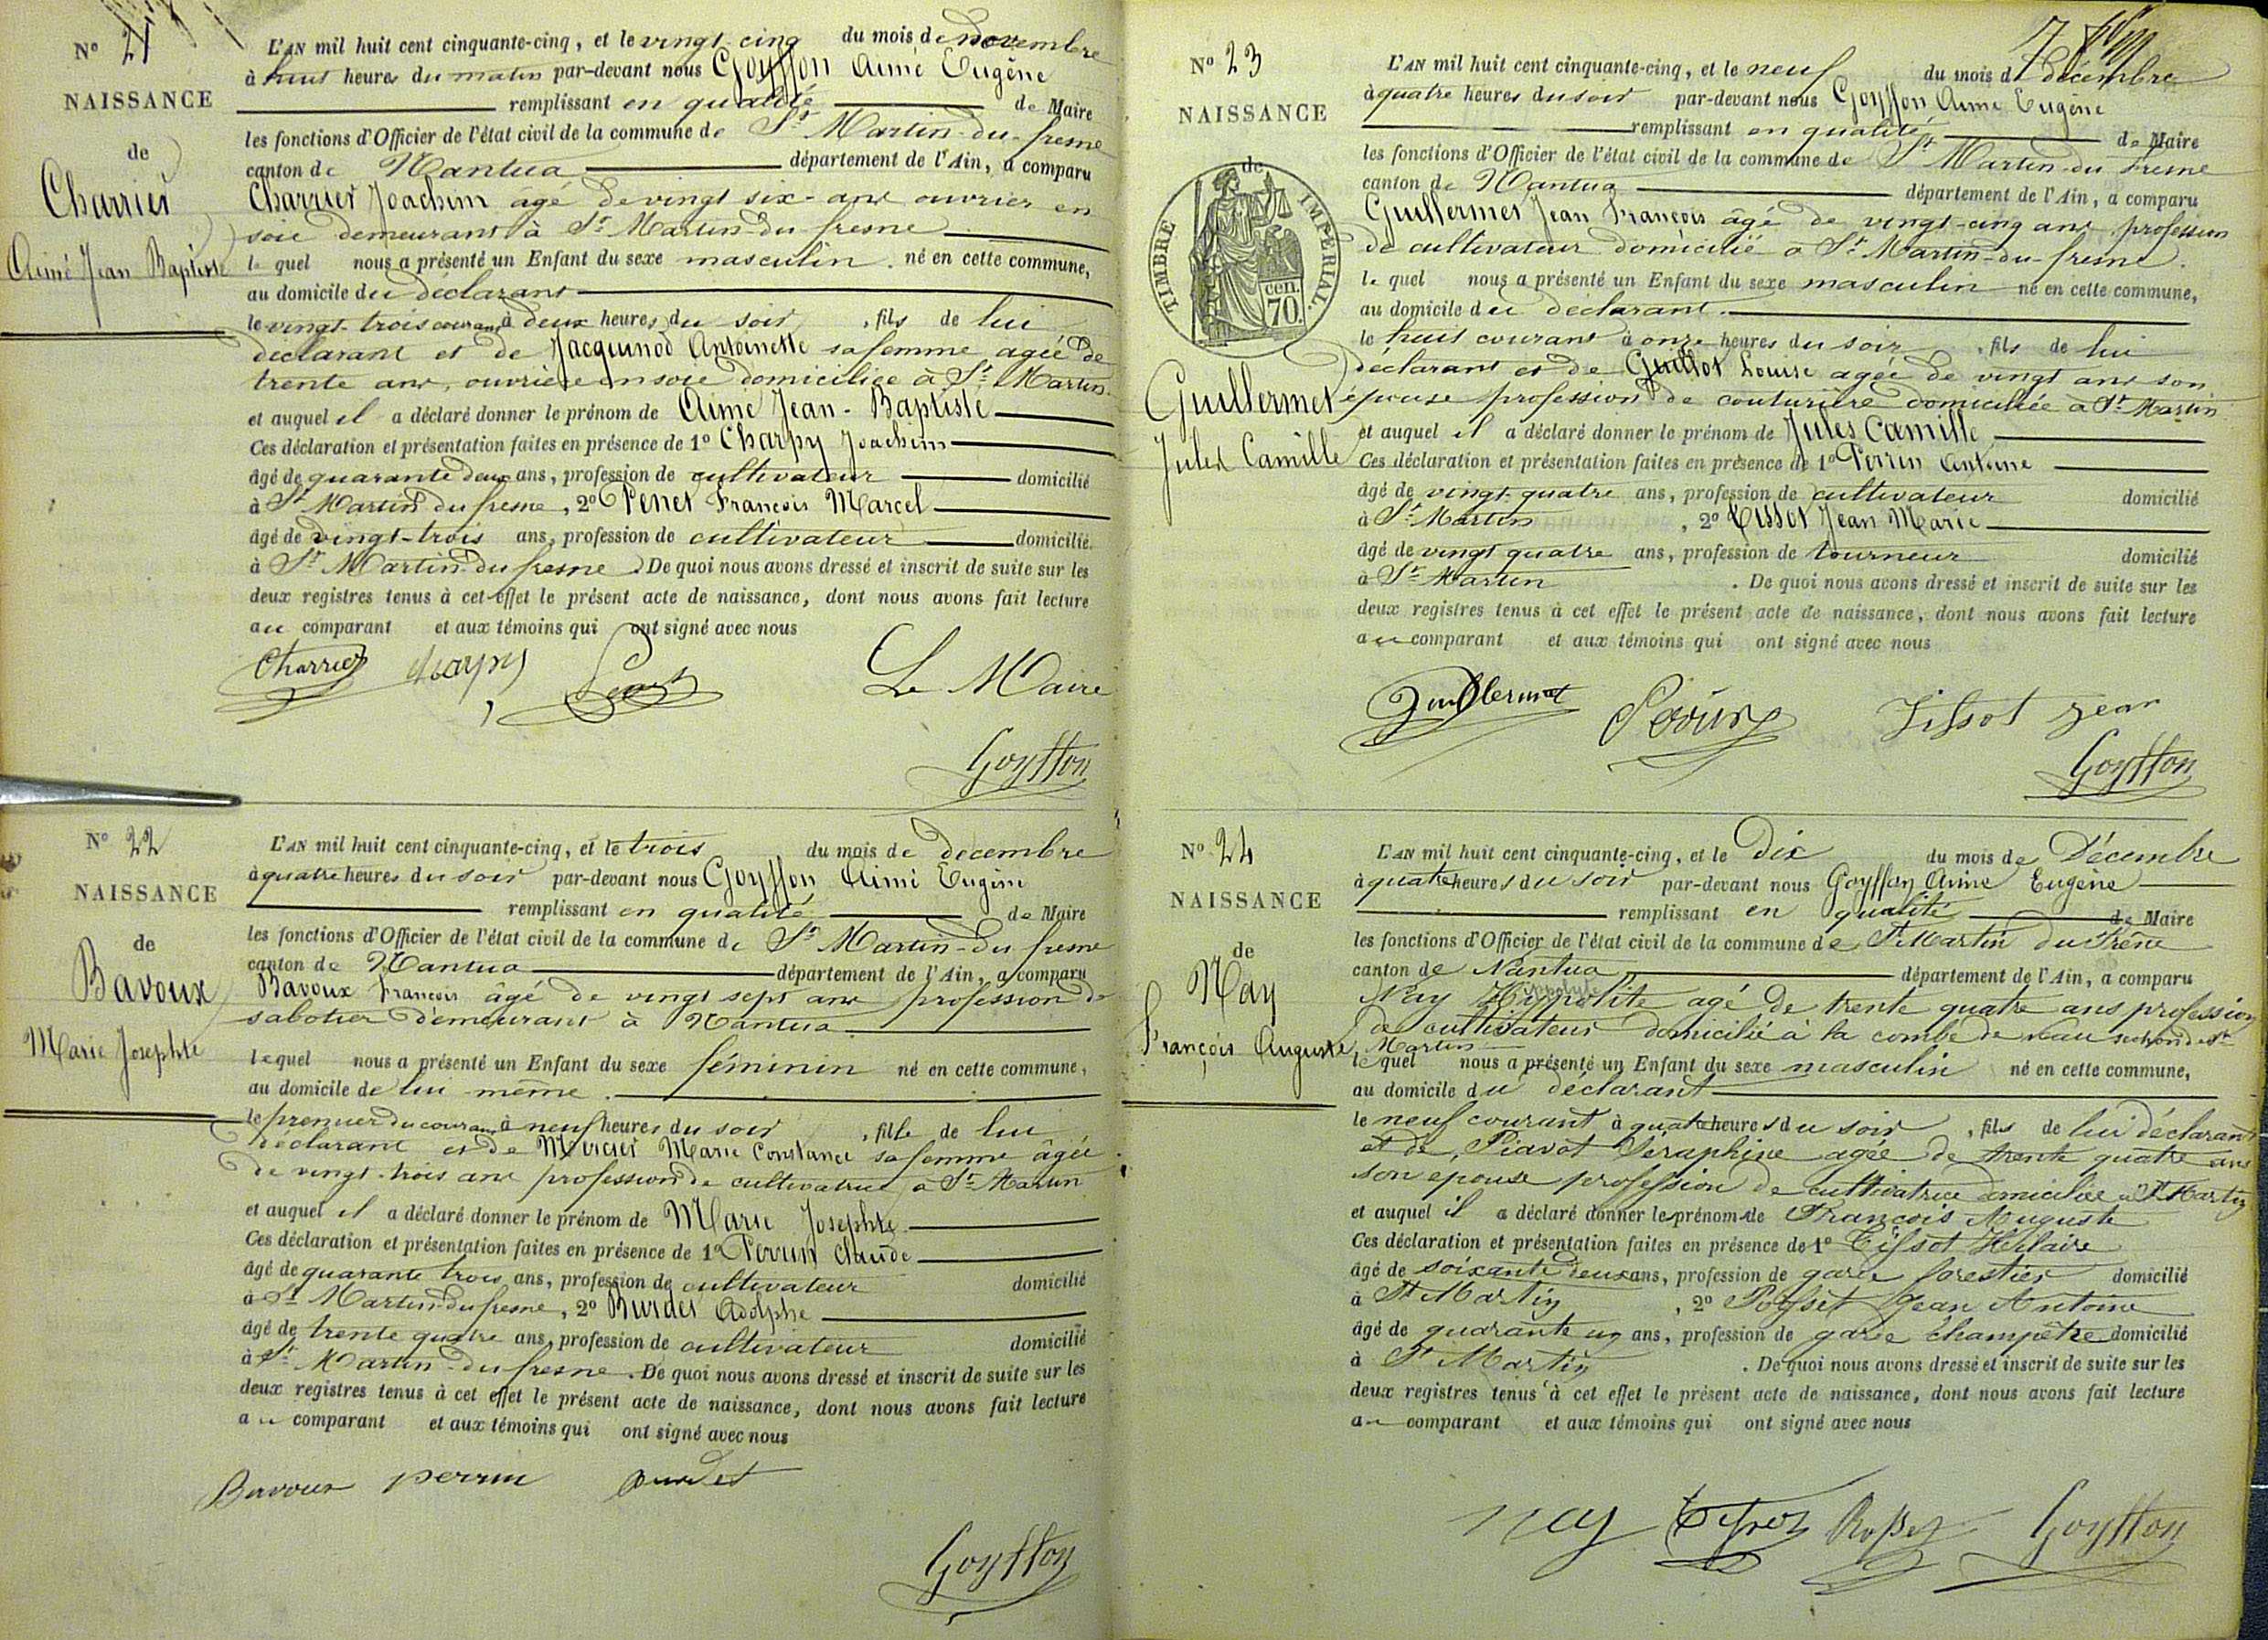 N° 21
NAISSANCE
de
Charrier
Aimé Jean Baptiste
L'AN mil huit cent cinquante-cinq, et le vingt-cinq du mois de novembre
à huit heures du matin par-devant nous Goyffon Aimé Eugène
remplissant en qualité de Maire
les fonctions d'Officier de l'état civil de la commune de St Martin-du-fresne
canton de Nantua département de l'Ain, a comparu
Charrier Joachim âgé de vingt six-ans ouvrier en
soie demeurant à St Martin-du-fresne
le quel nous a présenté un Enfant du sexe masculin né en cette commune,
au domicile du déclarant
le vingt-trois courant à deux heures du soir, fils de lui
déclarant et de Jacquinod Antoinette sa femme agée de
trente ans, ouvrière en soie domiciliée à St Martin.
et auquel il a déclaré donner le prénom de Aimé Jean-Baptiste
Ces déclaration et présentation faites en présence de 1° Charpy Joachim
âgé de quarante deux ans, profession de cultivateur domicilié
à St Martin du fresne, 2° Penet François Marcel
âgé de vingt-trois ans, profession de cultivateur domicilié
à St Martin-du fresne. De quoi nous avons dressé et inscrit de suite sur les
deux registres tenus à cet effet le présent acte de naissance, dont nous avons fait lecture
au comparant et aux témoins qui ont signé avec nous
Charrier Charpy Penet Le Maire
Goyffon
N° 22
NAISSANCE
de
Bavoux
Marie Josephte
L'AN mil huit cent cinquante-cinq, et le trois du mois de décembre
à quatre heures du soir par-devant nous Goyffon Aimé Eugène
remplissant en qualité de Maire
les fonctions d'Officier de l'état civil de la commune de St Martin-du fresne
canton de Nantua département de l'Ain, a comparu
Bavoux François âgé de vingt sept ans profession de
sabotier demeurant à Nantua
le quel nous a présenté un Enfant du sexe féminin né en cette commune,
au domicile de lui même.
le premier du courant à neuf heures du soir, fille de lui
déclarant et de Mercier Marie Constance sa femme âgée
de vingt-trois ans profession de cultivatrice à St Martin
et auquel il a déclaré donner le prénom de Marie Josephte
Ces déclaration et présentation faites en présence de 1° Perrin Claude
âgé de quarante trois ans, profession de cultivateur domicilié
à St Martin-du fresne, 2° Burdet Adolphe
âgé de trente quatre ans, profession de cultivateur domicilié
à St Martin-du fresne. De quoi nous avons dressé et inscrit de suite sur les
deux registres tenus à cet effet le présent acte de naissance, dont nous avons fait lecture
au comparant et aux témoins qui ont signé avec nous
Bavoux perrin Burdet
Goyffon
N° 23
NAISSANCE
de
TIMBRE IMPERIAL.
cen.
70.
Guillermet
Jules Camille
L'AN mil huit cent cinquante-cinq, et le neuf du mois de décembre
à quatre heures du soir par-devant nous Goyffon Aimé Eugène
remplissant en qualité de Maire
les fonctions d'Officier de l'état civil de la commune de St Martin-du fresne
canton de Nantua département de l'Ain, a comparu
Guillermet Jean François âgé de vingt-cinq ans profession
de cultivateur domicilié à St Martin-du-fresne.
le quel nous a présenté un Enfant du sexe masculin né en cette commune,
au domicile du déclarant.
le huit courant à onze heures du soir, fils de lui
déclarant et de Guillot Louise agée de vingt ans son
épouse profession de couturière domiciliée à St Martin
et auquel il a déclaré donner le prénom de Jules Camille
Ces déclaration et présentation faites en présence de 1° Perrin Antoine
âgé de vingt-quatre ans, profession de cultivateur domicilié
à St Martin, 2° Tissot Jean Marie
âgé de vingt quatre ans, profession de tourneur domicilié
à St Martin. De quoi nous avons dressé et inscrit de suite sur les
deux registres tenus à cet effet le présent acte de naissance, dont nous avons fait lecture
au comparant et aux témoins qui ont signé avec nous
Guillermet Tissot jean
Goyffon
N° 24
NAISSANCE
de
Nay
François Auguste
L'AN mil huit cent cinquante-cinq, et le Dix du mois de Décembre
à quatre heures du soir par-devant nous Goyffon Aimé Eugène
remplissant en qualité de Maire
les fonctions d'Officier de l'état civil de la commune de St Martin du Frêne
canton de Nantua département de l'Ain, a comparu
Nay Hippolite agé de trente quatre ans profession
de cultivateur domicilié à la combe de section de St
Martin
le quel nous a présenté un Enfant du sexe masculin né en cette commune,
au domicile du déclarant
le neuf courant à quatre heures du soir, fils de lui déclarant
et de Piavot Séraphine agée de trente quatre ans
son épouse profession de cultivatrice domiciliée à St Martin
et auquel il a déclaré donner le prénom de François Auguste
Ces déclaration et présentation faites en présence de 1° Tissot Hilaire
âgé de soixante deux ans, profession de garde forestier domicilié
à St Martin, 2° Jean Antoine
âgé de quarante un ans, profession de garde champêtre domicilié
à St Martin. De quoi nous avons dressé et inscrit de suite sur les
deux registres tenus à cet effet le présent acte de naissance, dont nous avons fait lecture
au comparant et aux témoins qui ont signé avec nous
nay Goyffon